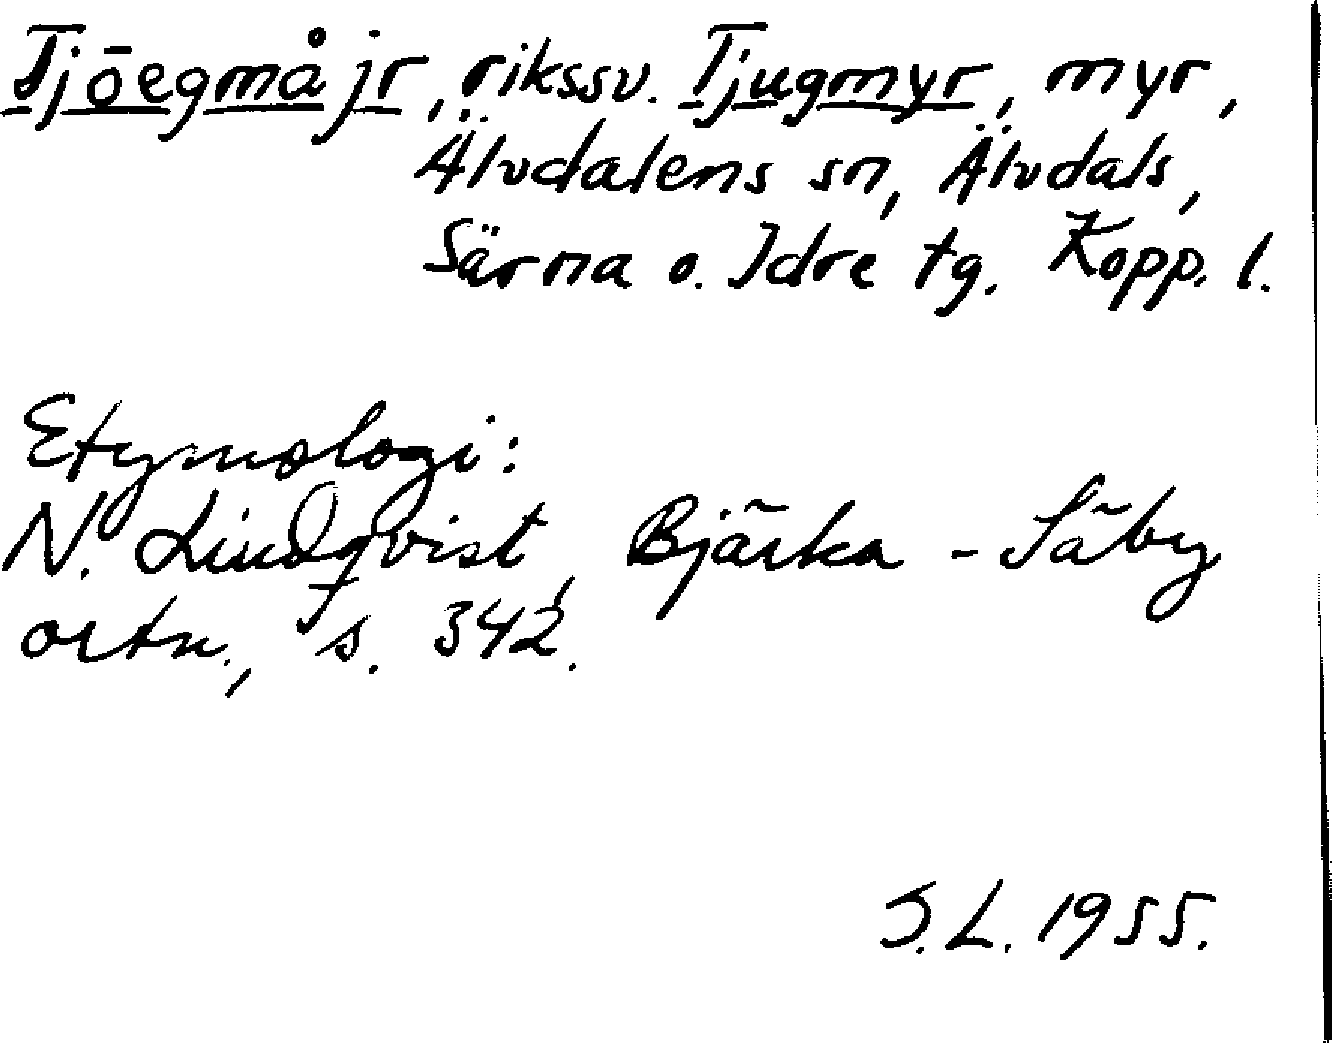 Tjōegmåjr, rikssv. Tjugmyr, myr,
Älvdalens sn, Älvdals,
Särna o. Idre tg. Kopp. l.
Etymologi:
N. Lindqvist, Bjärka-Säby
ortn., s. 342.
J.L. 1955.